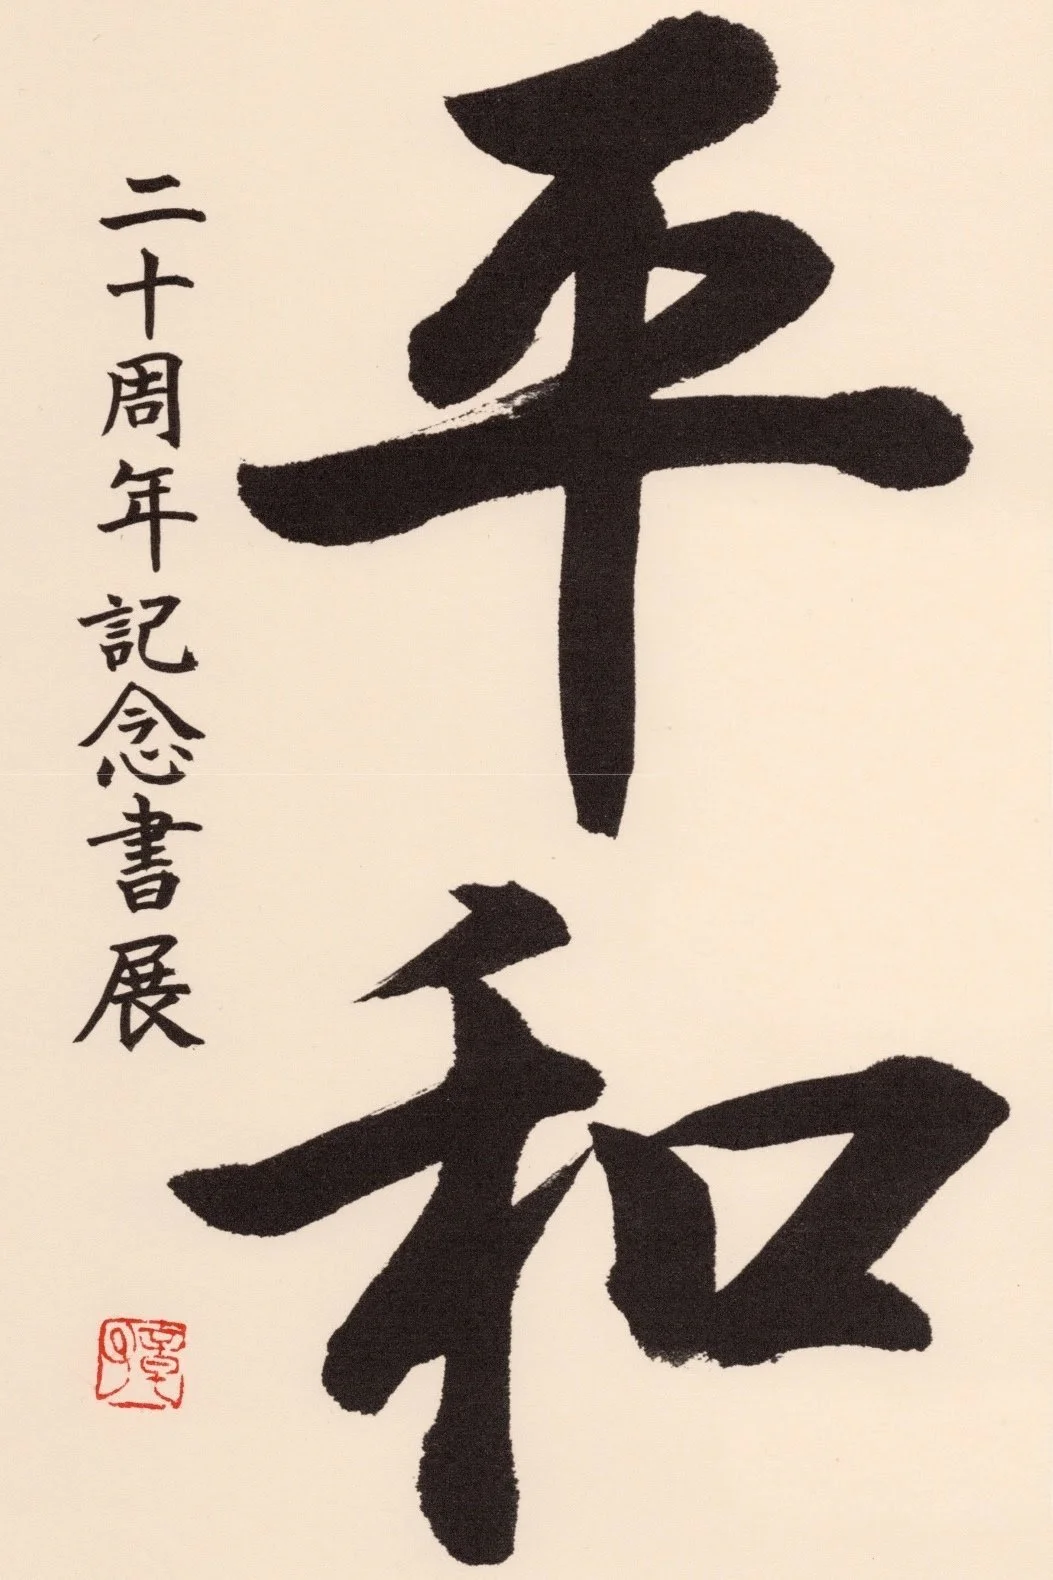 平和
二十周年記念書展